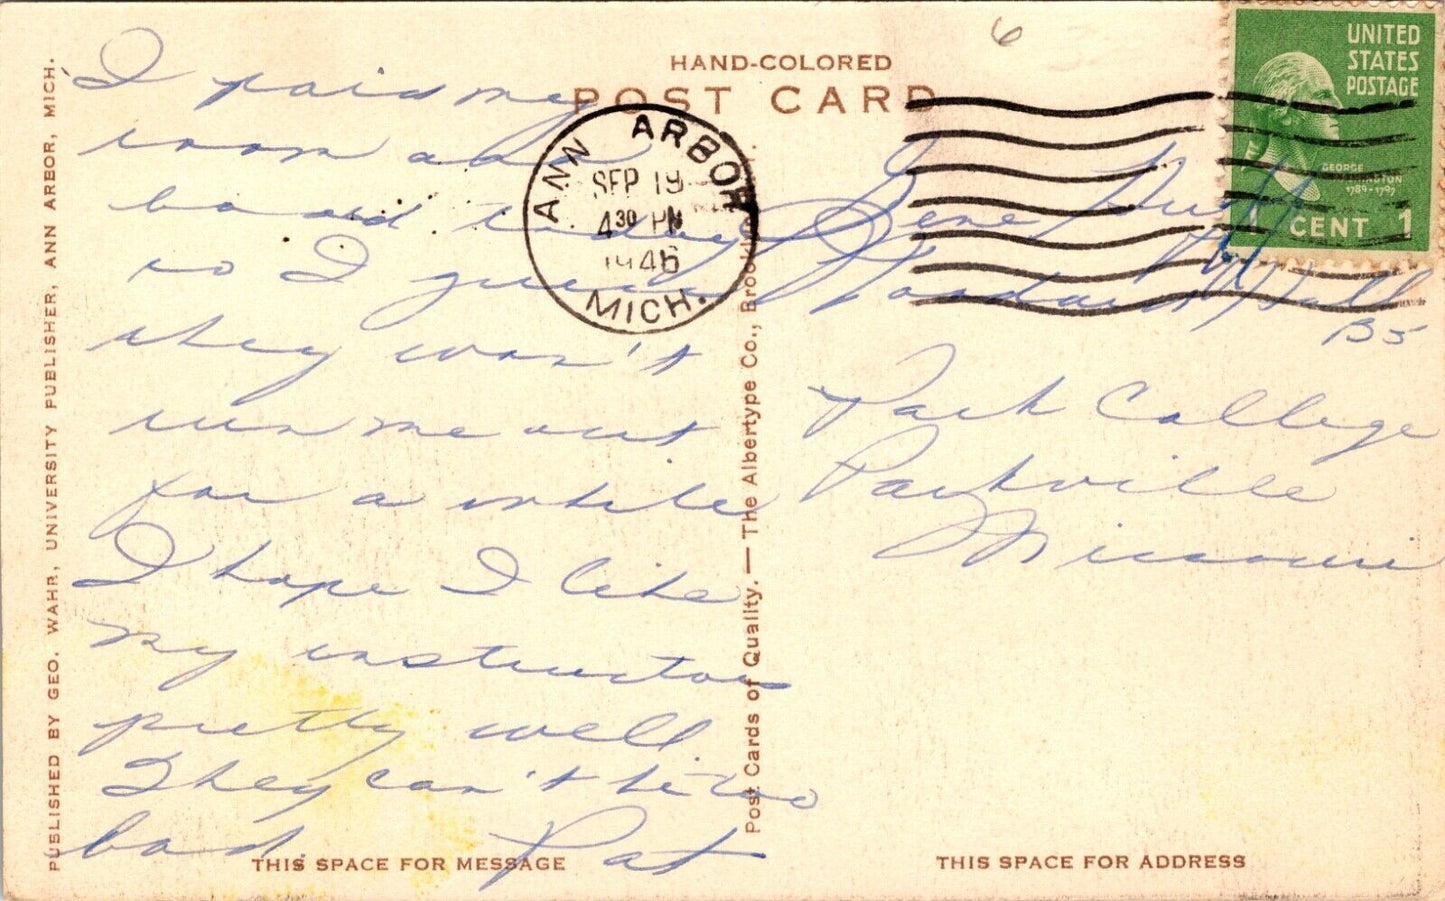 HAND-COLORED
POST CARD
I paid my
room and
board today
so I guess
they won't
run me out
for a while
I hope I like
my instructors
pretty well
They can't be too
bad.
Pat
THIS SPACE FOR MESSAGE
PUBLISHED BY GEO. WAHR, UNIVERSITY PUBLISHER, ANN ARBOR, MICH.
Post Cards of Quality. — The Albertype Co., Brook
ANN ARBOR
SEP 19
4 30 PM
1946
MICH.
6
UNITED
STATES
POSTAGE
GEORGE
WASHINGTON
1789-1797
CENT 1
Gene
Hall
B5
Park College
Parkville
Missouri
THIS SPACE FOR ADDRESS